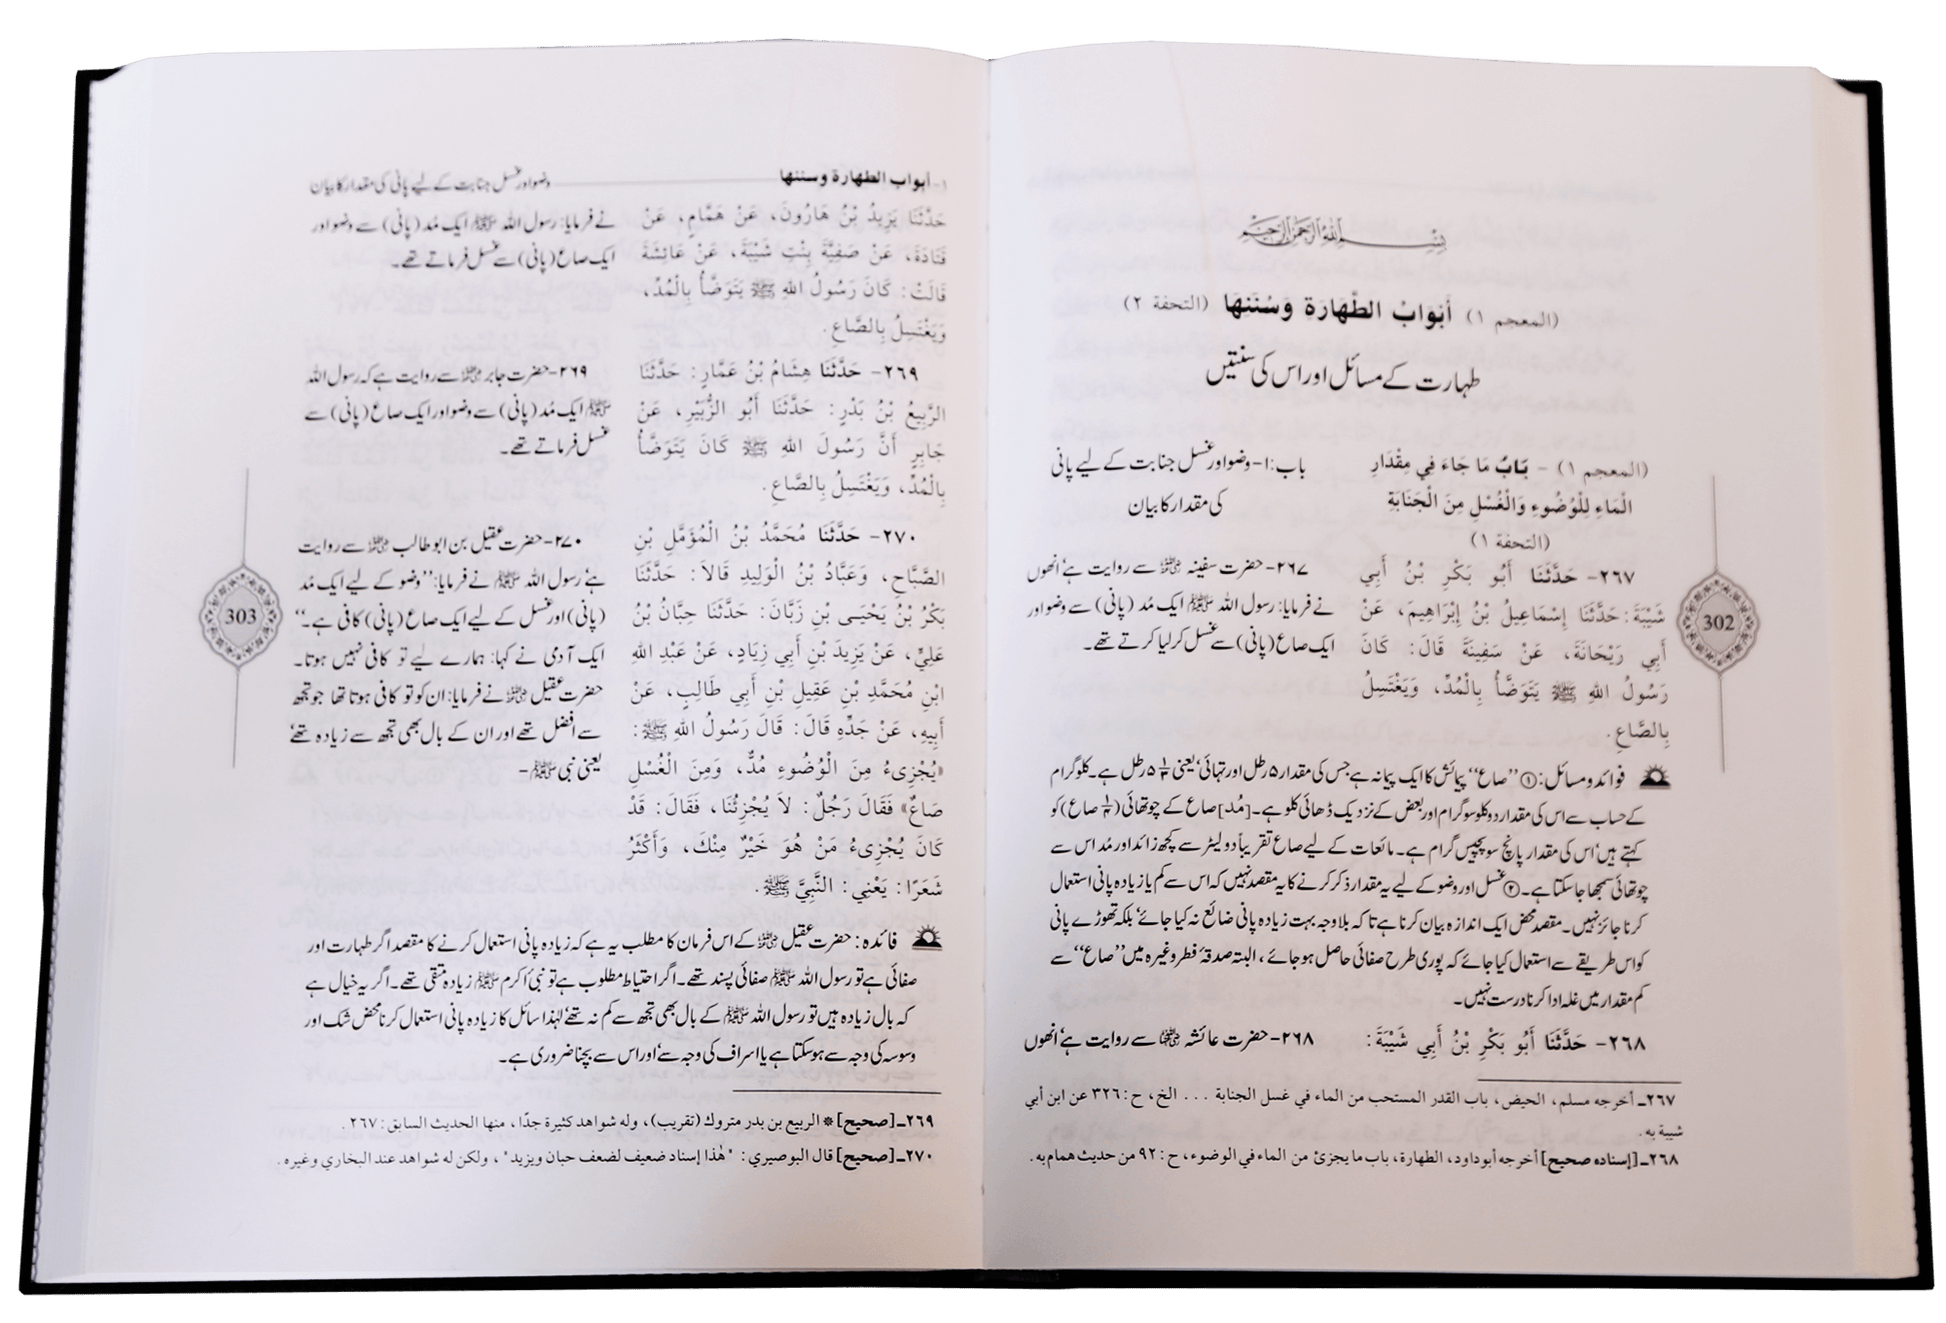 بِسْمِ اللهِ الرَّحْمٰنِ الرَّحِيْمِ
(المعجم ١) أَبْوَابُ الطَّهَارَةِ وَسُنَنِهَا (التحفة ٢)
طہارت کے مسائل اور اس کی سنتیں
(المعجم ١) - بَابُ مَا جَاءَ فِي مِقْدَارِ
الْمَاءِ لِلْوُضُوءِ وَالْغُسْلِ مِنَ الْجَنَابَةِ
(التحفة ١)
باب:۱- وضو اور غسل جنابت کے لیے پانی
کی مقدار کا بیان
٢٦٧- حَدَّثَنَا أَبُو بَكْرِ بْنُ أَبِي
شَيْبَةَ: حَدَّثَنَا إِسْمَاعِيلُ بْنُ إِبْرَاهِيمَ، عَنْ
أَبِي رَيْحَانَةَ، عَنْ سَفِينَةَ قَالَ: كَانَ
رَسُولُ اللهِ ﷺ يَتَوَضَّأُ بِالْمُدِّ، وَيَغْتَسِلُ
بِالصَّاعِ.
۲۶۷- حضرت سفینہ ؓ سے روایت ہے‘ انھوں
نے فرمایا: رسول اللہ ﷺ ایک مُد (پانی) سے وضو اور
ایک صاع (پانی) سے غسل کر لیا کرتے تھے۔
فوائد و مسائل: ① ”صاع“ پیمائش کا ایک پیمانہ ہے جس کی مقدار ۵ رطل اور تہائی‘ یعنی ۵ ۱/۳ رطل ہے۔ کلوگرام
کے حساب سے اس کی مقدار دو کلو سو گرام اور بعض کے نزدیک ڈھائی کلو ہے۔ [مُد] صاع کے چوتھائی (۱/۴ صاع) کو
کہتے ہیں‘ اس کی مقدار پانچ سو پچیس گرام ہے۔ مائعات کے لیے صاع تقریباً دو لیٹر سے کچھ زائد اور مُد اس سے
چوتھائی سمجھا جا سکتا ہے۔ ② غسل اور وضو کے لیے یہ مقدار ذکر کرنے کا یہ مقصد نہیں کہ اس سے کم یا زیادہ پانی استعمال
کرنا جائز نہیں۔ مقصد محض ایک اندازہ بیان کرنا ہے تاکہ بلاوجہ بہت زیادہ پانی ضائع نہ کیا جائے‘ بلکہ تھوڑے پانی
کو اس طریقے سے استعمال کیا جائے کہ پوری طرح صفائی حاصل ہو جائے، البتہ صدقۂ فطر وغیرہ میں ”صاع“ سے
کم مقدار میں غلہ ادا کرنا درست نہیں۔
٢٦٨- حَدَّثَنَا أَبُو بَكْرِ بْنُ أَبِي شَيْبَةَ:
۲۶۸- حضرت عائشہ ؓ سے روایت ہے‘ انھوں
٢٦٧ـ أخرجه مسلم، الحيض، باب القدر المستحب من الماء في غسل الجنابة ... الخ، ح:٣٢٦ عن ابن أبي
شيبة به.
٢٦٨ـ [إسناده صحيح] أخرجه أبوداود، الطهارة، باب ما يجزئ من الماء في الوضوء، ح:٩٢ من حديث همام به.
302
١- أبواب الطهارة وسننها
وضو اور غسل جنابت کے لیے پانی کی مقدار کا بیان
حَدَّثَنَا يَزِيدُ بْنُ هَارُونَ، عَنْ هَمَّامٍ، عَنْ
قَتَادَةَ، عَنْ صَفِيَّةَ بِنْتِ شَيْبَةَ، عَنْ عَائِشَةَ
قَالَتْ: كَانَ رَسُولُ اللهِ ﷺ يَتَوَضَّأُ بِالْمُدِّ،
وَيَغْتَسِلُ بِالصَّاعِ.
نے فرمایا: رسول اللہ ﷺ ایک مُد (پانی) سے وضو اور
ایک صاع (پانی) سے غسل فرماتے تھے۔
٢٦٩- حَدَّثَنَا هِشَامُ بْنُ عَمَّارٍ: حَدَّثَنَا
الرَّبِيعُ بْنُ بَدْرٍ: حَدَّثَنَا أَبُو الزُّبَيْرِ، عَنْ
جَابِرٍ أَنَّ رَسُولَ اللهِ ﷺ كَانَ يَتَوَضَّأُ
بِالْمُدِّ، وَيَغْتَسِلُ بِالصَّاعِ.
۲۶۹- حضرت جابر ؓ سے روایت ہے کہ رسول اللہ
ﷺ ایک مُد (پانی) سے وضو اور ایک صاع (پانی) سے
غسل فرماتے تھے۔
٢٧٠- حَدَّثَنَا مُحَمَّدُ بْنُ الْمُؤَمَّلِ بْنِ
الصَّبَّاحِ، وَعَبَّادُ بْنُ الْوَلِيدِ قَالَا: حَدَّثَنَا
بَكْرُ بْنُ يَحْيَى بْنِ زَبَّانَ: حَدَّثَنَا حِبَّانُ بْنُ
عَلِيٍّ، عَنْ يَزِيدَ بْنِ أَبِي زِيَادٍ، عَنْ عَبْدِ اللهِ
ابْنِ مُحَمَّدِ بْنِ عَقِيلِ بْنِ أَبِي طَالِبٍ، عَنْ
أَبِيهِ، عَنْ جَدِّهِ قَالَ: قَالَ رَسُولُ اللهِ ﷺ:
«يُجْزِىءُ مِنَ الْوُضُوءِ مُدٌّ، وَمِنَ الْغُسْلِ
صَاعٌ» فَقَالَ رَجُلٌ: لَا يُجْزِئُنَا، فَقَالَ: قَدْ
كَانَ يُجْزِىءُ مَنْ هُوَ خَيْرٌ مِنْكَ، وَأَكْثَرُ
شَعَرًا: يَعْنِي: النَّبِيَّ ﷺ.
۲۷۰- حضرت عقیل بن ابو طالب ؓ سے روایت
ہے‘ رسول اللہ ﷺ نے فرمایا: ”وضو کے لیے ایک مُد
(پانی) اور غسل کے لیے ایک صاع (پانی) کافی ہے۔“
ایک آدمی نے کہا: ہمارے لیے تو کافی نہیں ہوتا۔
حضرت عقیل ؓ نے فرمایا: ان کو تو کافی ہوتا تھا جو تجھ
سے افضل تھے اور ان کے بال بھی تجھ سے زیادہ تھے‘
یعنی نبی ﷺ -
فائدہ: حضرت عقیل ؓ کے اس فرمان کا مطلب یہ ہے کہ زیادہ پانی استعمال کرنے کا مقصد اگر طہارت اور
صفائی ہے تو رسول اللہ ﷺ صفائی پسند تھے۔ اگر احتیاط مطلوب ہے تو نبیٔ اکرم ﷺ زیادہ متقی تھے۔ اگر یہ خیال ہے
کہ بال زیادہ ہیں تو رسول اللہ ﷺ کے بال بھی تجھ سے کم نہ تھے‘ لہٰذا سائل کا زیادہ پانی استعمال کرنا محض شک اور
وسوسہ کی وجہ سے ہو سکتا ہے یا اسراف کی وجہ سے‘ اور اس سے بچنا ضروری ہے۔
٢٦٩ـ [صحيح] * الربيع بن بدر متروك (تقريب)، وله شواهد كثيرة جدًا، منها الحديث السابق: ٢٦٧.
٢٧٠ـ [صحيح] قال البوصيري: "هٰذا إسناد ضعيف لضعف حبان ويزيد"، ولكن له شواهد عند البخاري وغيره.
303